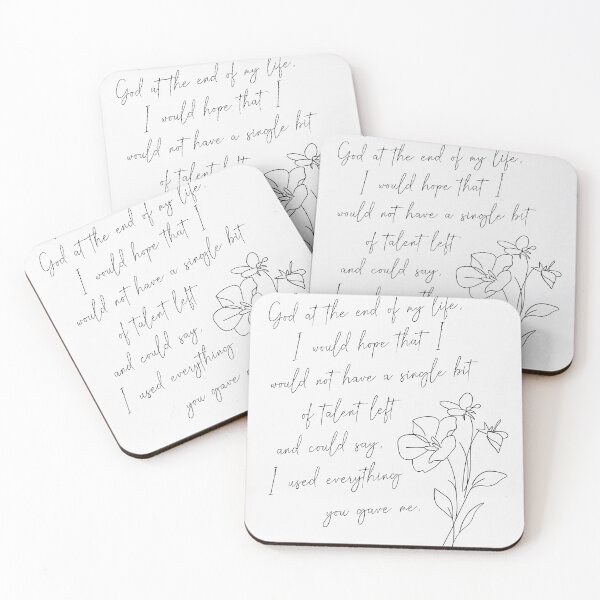 God at the end of my life,
I would hope that I
would not have a single bit
of talent left
God at the end of my life,
I would hope that I
would not have a single bit
of talent left
and could say,
God at the end of my life,
I would hope that I
would not have a single bit
of talent left
and could say,
I used everything
you gave
God at the end of my life,
I would hope that I
would not have a single bit
of talent left
and could say,
I used everything
you gave me.